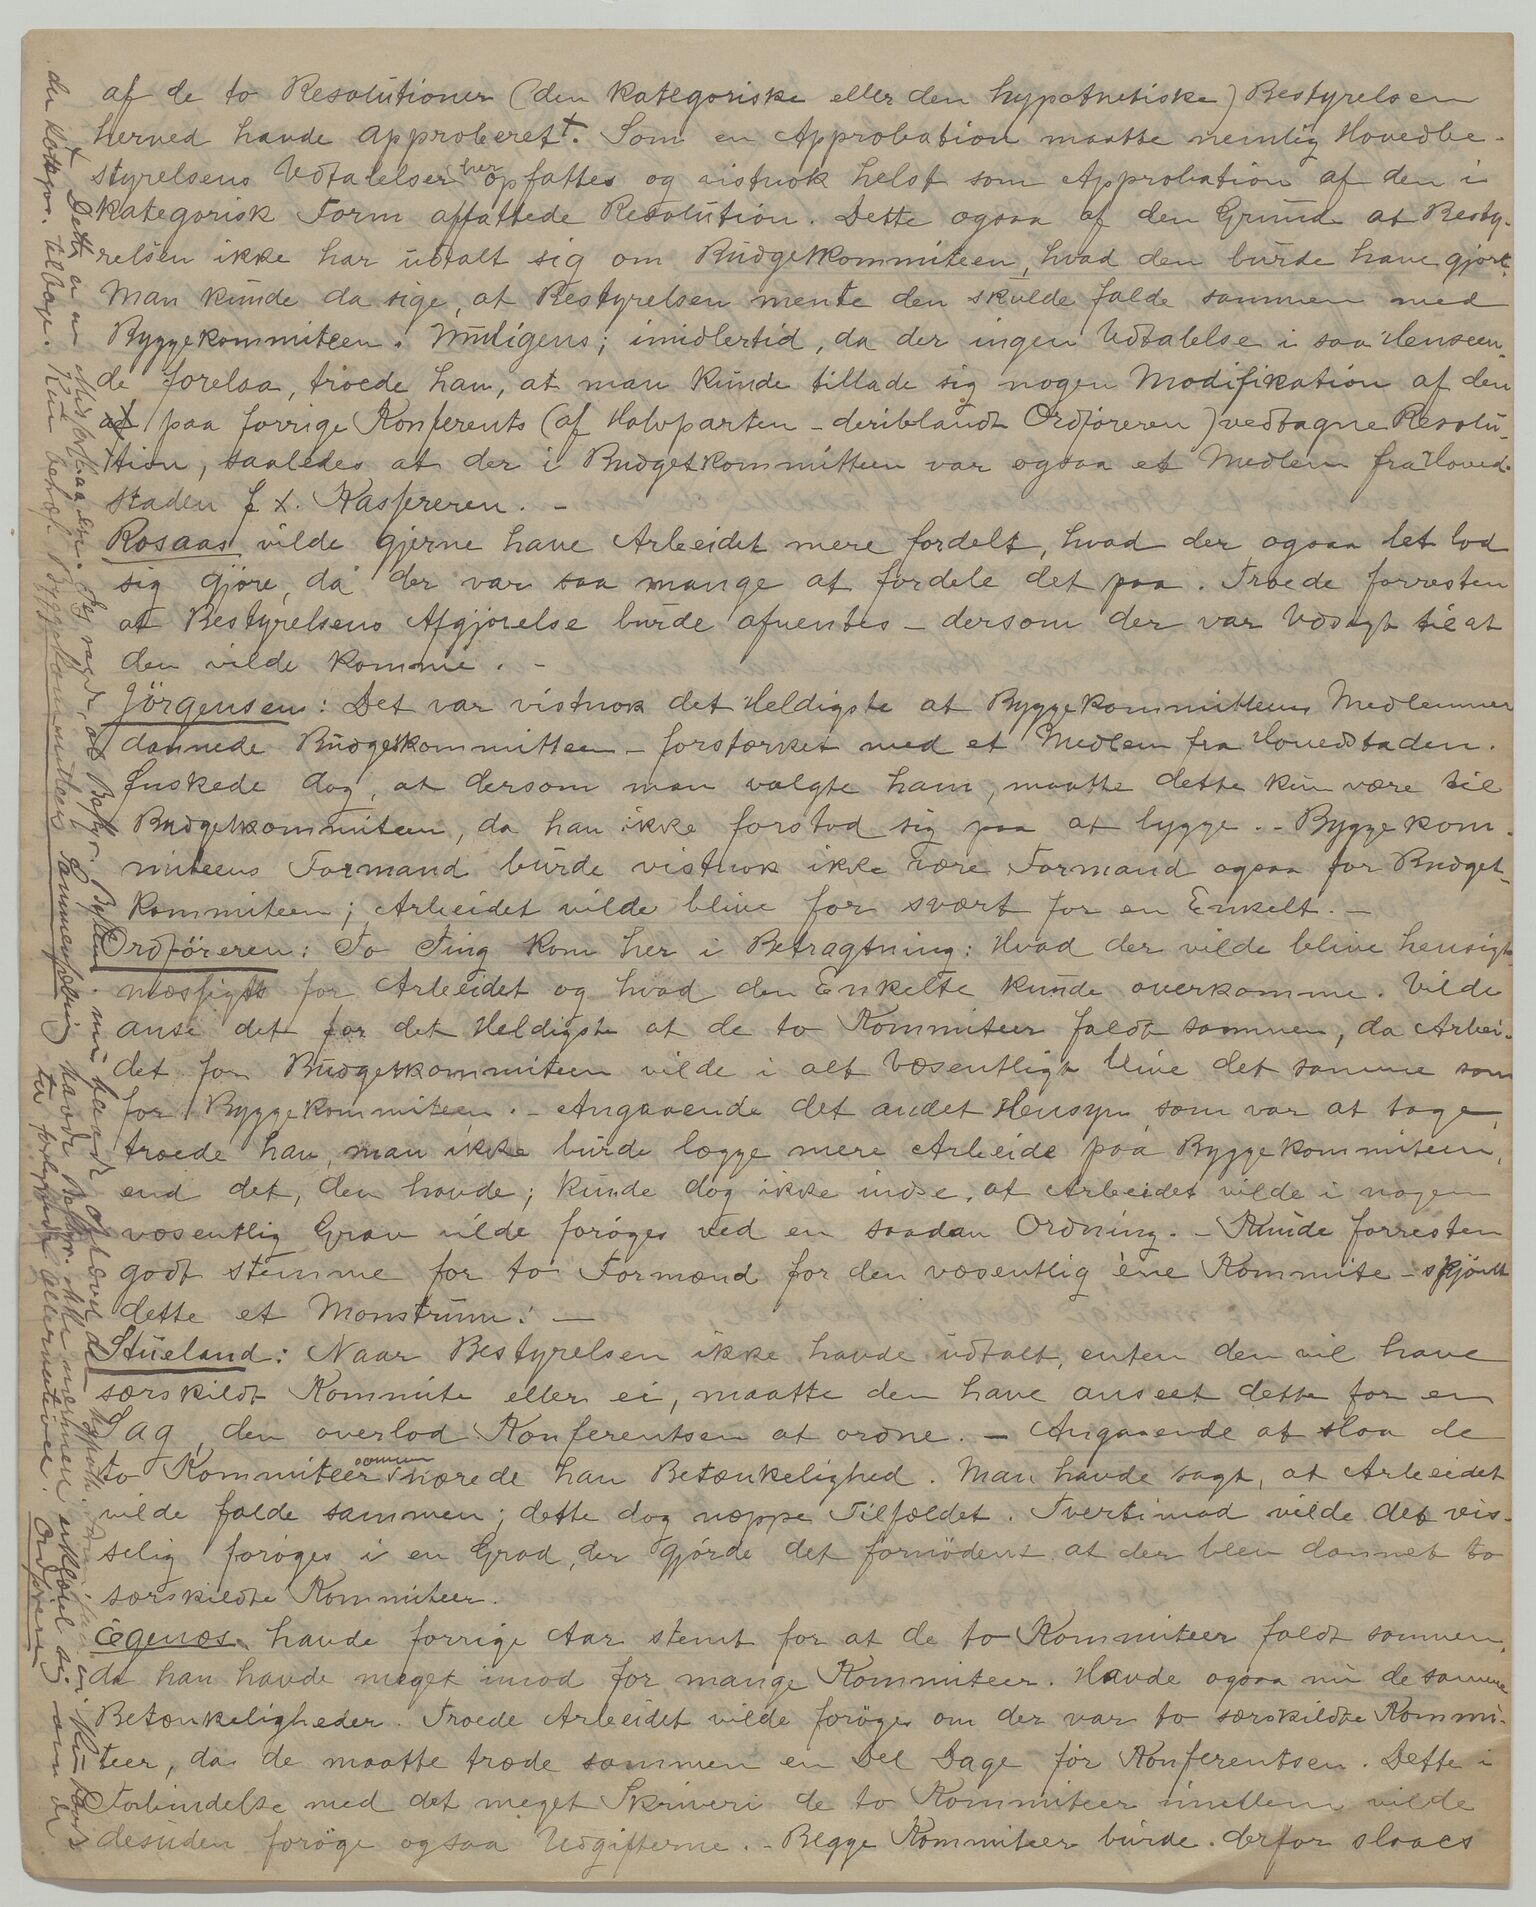 af de to Resolutioner (den kategoriske eller den hypothetiske) Bestyrelsen
herved havde approberet†. Som en Approbation maatte nemlig Hovedbe-
styrelsens Udtalelser her opfattes og vistnok helst som Approbation af den i
kategorisk Form affattede Resolution. Dette ogsaa af den Grund at Besty-
relsen ikke har udtalt sig om Budgetkommiteen, hvad den burde have gjort.
Man kunde da sige, at Bestyrelsen mente den skulde falde sammen med
Byggekommiteen. Muligens; imidlertid, da der ingen Udtalelse i saa Henseen-
de forelaa, troede han, at man kunde tillade sig nogen Modifikation af den
paa forrige Konferents (af Halvparten - deriblandt Ordföreren) vedtagne Resolu-
tion, saaledes at der i Budgetkommitteen var ogsaa et Medlem fra Hoved-
staden f x. Kassereren. -
Rosaas vilde gjerne have Arbeidet mere fordelt, hvad der ogsaa let lod
sig gjöre, da der var saa mange at fordele det paa. Troede forresten
at Bestyrelsens Afgjörelse burde afventes - dersom der var Udsigt til at
den vilde komme. -
Jörgensen: Det var vistnok det Heldigste at Byggekommitteens Medlemmer
dannede Budgetkommitteen - forstærket med et Medlem fra Hovedstaden.
Önskede dog, at dersom man valgte ham, maatte dette kun være til
Budgetkommiteen, da han ikke forstod sig paa at bygge. - Byggekom-
miteens Formand burde vistnok ikke være Formand ogsaa for Budget-
kommiteen; Arbeidet vilde blive for svært for en Enkelt. -
Ordföreren: To Ting kom her i Betragtning: Hvad der vilde blive hensigts-
mæssigst for Arbeidet og hvad den Enkelte kunde overkomme. Vilde
anse det for det Heldigste at de to Kommiteer faldt sammen, da Arbei-
det for Budgetkommiteen vilde i alt Væsentligt blive det samme som
for Byggekommiteen. - Angaaende det andet Hensyn som var at tage,
troede han, man ikke burde lægge mere Arbeide paa Byggekommiteen,
end det, den havde; kunde dog ikke indse, at Arbeidet vilde i nogen
væsentlig Grav vilde foröges ved en saadan Ordning. - Kunde forresten
godt stemme for to Formænd for den væsentlig éne Kommite - skjöndt
dette et Monstrum! -
Stueland: Naar Bestyrelsen ikke havde udtalt, enten den vil have
særskildt Kommite eller ei, maatte den have anseet dette for en
Sag, den overlod Konferentsen at ordne. - Angaaende at slaa de
to Kommiteer sammen nærede han Betænkelighed. Man havde sagt, at Arbeidet
vilde falde sammen; dette dog neppe Tilfældet. Tvertimod vilde det vis-
selig foröges i en Grad, der gjörde det fornödent at der blev dannet to
særskildte Kommiteer.
Egenæs havde forrige Aar stemt for at de to Kommiteer faldt sammen,
da han havde meget imod for mange Kommiteer. Havde ogsaa nu de samme
Betænkeligheder. Troede Arbeidet vilde foröges om der var to særskildte Kommi-
teer, da de maatte træde sammen en Del Dage för Konferentsen. Dette i
Forbindelse med det meget Skriveri de to Kommiteer imellem vilde
desuden foröge ogsaa Udgifterne. - Begge Kommiteer burde derfor slaaes
† Dette er en Misforstaaelse. Jeg sagde, at Bestyr.
tilbage. Kun Byggekommiteers Sammensætning havde Bestyr. ikke nærmere erklæret sig om
Alternativer. Ordföreren